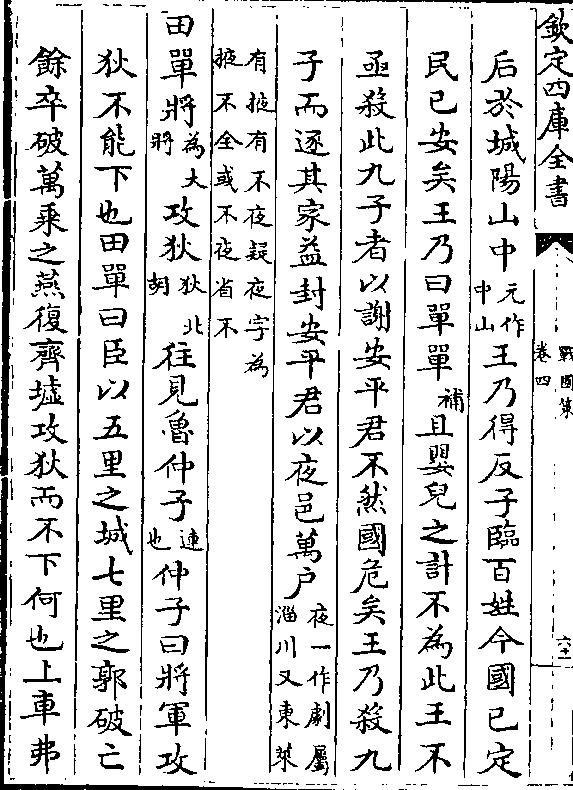 欽定四庫全書
戰國策
卷四
六十一
后於城陽山中元作中山王乃得反子臨百姓今國已定
民已安矣王乃曰單單補且嬰兒之計不為此王不
亟殺此九子者以謝安平君不然國危矣王乃殺九
子而逐其家益封安平君以夜邑萬户夜一作劇屬淄川又東萊
有掖有不夜疑夜字為
掖不全或不夜省不
田單將為大將攻狄狄北胡往見魯仲子連也仲子曰將軍攻
狄不能下也田單曰臣以五里之城七里之郭破亡
餘卒破萬乘之燕復齊墟攻狄而不下何也上車弗